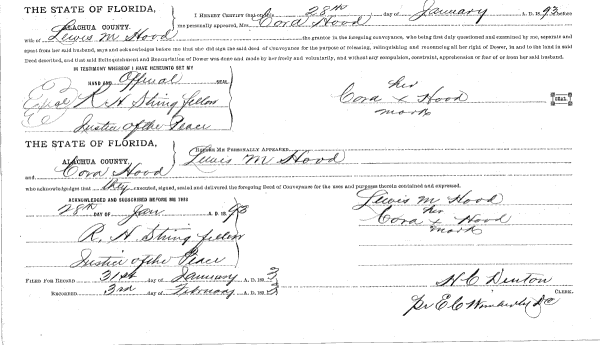 THE STATE OF FLORIDA,
ALACHUA COUNTY.
I HEREBY CERTIFY that on this 28th day of January A. D. 1893, before
me personally appeared, Mrs. Cora Hood
wife of Lewis M Hood the grantor in the foregoing conveyance, who being first duly questioned and examined by me, separate and
apart from her said husband, says and acknowledges before me that she did sign the said deed of Conveyance for the purpose of releasing, relinquishing and renouncing all her right of Dower, in and to the land in said
Deed described, and that said Relinquishment and Renunciation of Dower was done and made by her freely and voluntarily, and without any compulsion, constraint, apprehension or fear of or from her said husband.
IN TESTIMONY WHEREOF I HAVE HEREUNTO SET MY
HAND AND Official SEAL
R. H. Stringfellow
Justice of the Peace
her
Cora x Hood
mark
SEAL
THE STATE OF FLORIDA,
ALACHUA COUNTY.
BEFORE ME PERSONALLY APPEARED Lewis M Hood
and Cora Hood
who acknowledges that they executed, signed, sealed and delivered the foregoing Deed of Conveyance for the uses and purposes therein contained and expressed.
ACKNOWLEDGED AND SUBSCRIBED BEFORE ME THIS
28th DAY OF Jan A. D. 1893
R. H. Stringfellow
Justice of the Peace
Lewis M Hood
her
Cora x Hood
mark
FILED FOR RECORD 31st day of January A. D. 189
RECORDED 3rd day of February A. D. 189
H C Denton
CLERK.
pr E C Wimberly DC